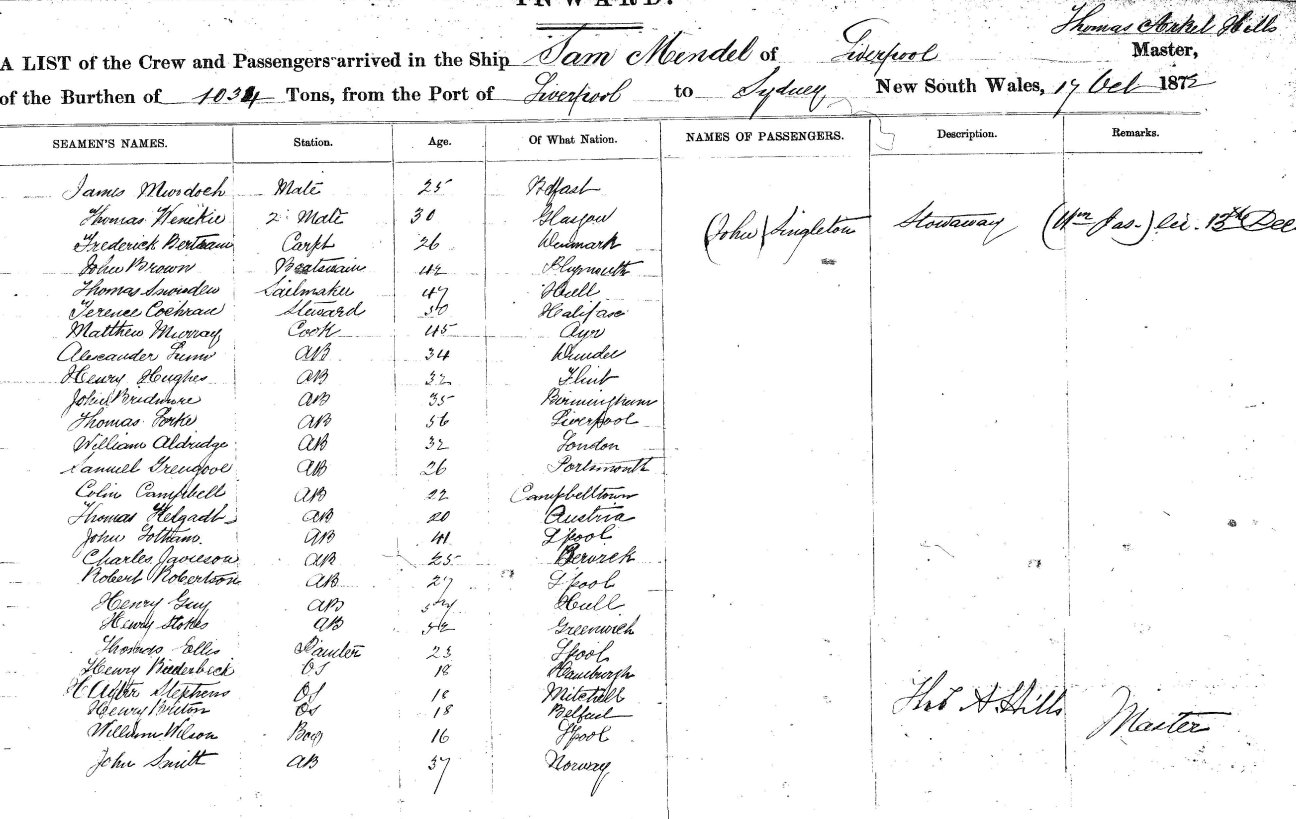 INWARD.
Thomas Arkel Hills
A LIST of the Crew and Passengers arrived in the Ship Sam Mendel of Liverpool Master,
of the Burthen of 1034 Tons, from the Port of Liverpool to Sydney New South Wales, 17 Oct 1872
SEAMEN'S NAMES. Station. Age. Of What Nation. NAMES OF PASSENGERS. Description. Remarks.
James Murdoch Mate 25 Belfast
Thomas 2 Mate 30 Glasgow (John) Singleton Stowaway (Wm Jas.) 13th Dec
Frederick Bertram Carpt 26 Denmark
John Brown Boatswain 42 Plymouth
Thomas Snowden Sailmaker 47 Hull
Terence Cochran Steward 50 Halifax
Matthew Murray Cook 45 Ayr
Alexander AB 34 Dundee
Henry Hughes AB 32 Flint
John AB 35 Birmingham
Thomas AB 56 Liverpool
William Aldridge AB 32 London
Samuel AB 26 Portsmouth
Colin Campbell AB 22 Campbeltown
Thomas AB 20 Austria
John AB 41 Lpool
Charles AB 25 Berwick
Robert Robertson AB 27 Lpool
Henry Guy AB Hull
Henry Stokes AB 52 Greenwich
Thomas 23 Lpool
Henry OS 18 Hamburgh
Stephens OS 18 Mitchell
Henry OS 18 Belfast
William Wilson Boy 16 Lpool
Thos A Hills Master
John Smith AB 37 Norway